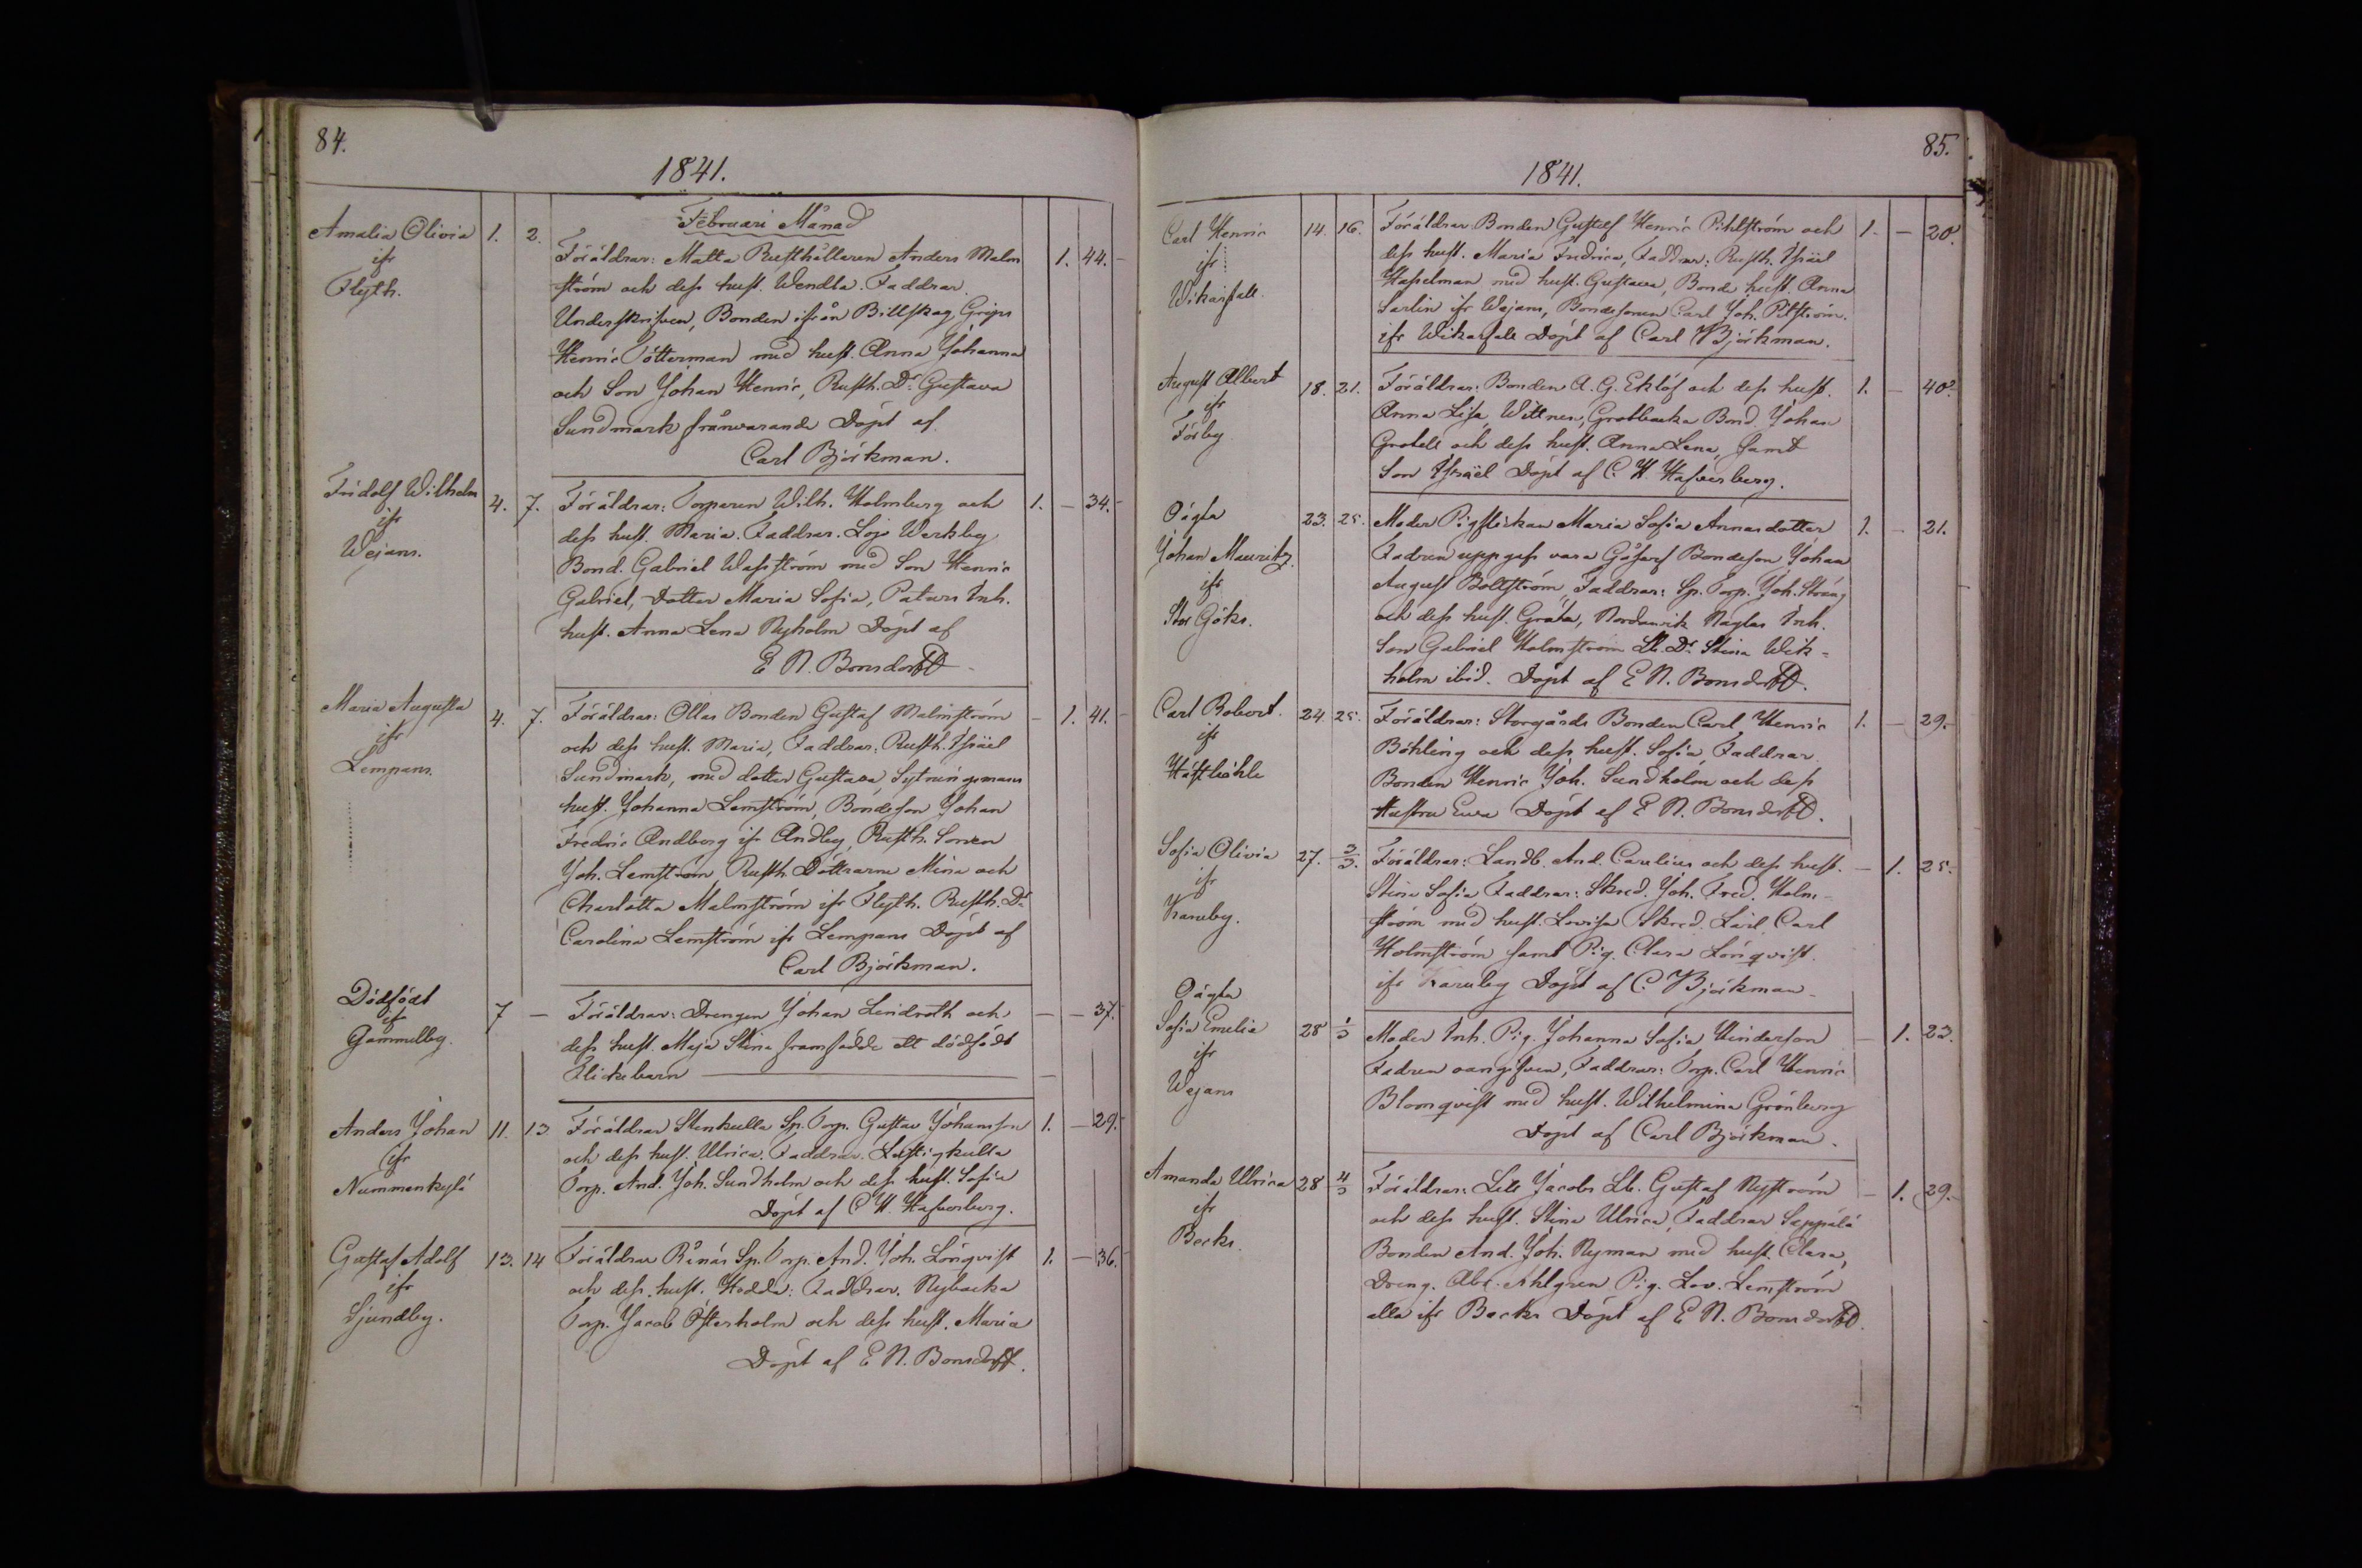 84.
1841.
Februari Månad
Amalia Olivia 1. 2.
ifr
Flyth.
Föräldrar: Matta Rusthållaren Anders Malm 1. 44.
ström och dess hust. Wendla. Faddrar.
Underskrifven, Bonden ifrån Billskog, Grips
Henric Pötterman med hust. Anna Johanna
och Son Johan Henric, Rusth. Dr. Gustava
Sundmark frånvarande Döpt af
Carl Björkman.
Fridolf Wilhelm 4. 7.
ifr
Wejans.
Föräldrar: Torparen Wilh. Holmberg och 1. — 34.
dess hust. Maria. Faddrar. Lojo Werkby
Bond. Gabriel Wasström med Son Henric
Gabriel, Dotter Maria Sofia, Paturs Inh.
hust. Anna Lena Nyholm Döpt af
E N. Bonsdorff
Maria Augusta 4. 7.
ifr
Lempans.
Föräldrar: Ollas Bonden Gustaf Malmström — 1. 41.
och dess hust. Maria, Faddrar: Rusth. Israel
Sundmark, med dotter Gustava, Sytningsmans
hust. Johanna Lemström, Bondeson Johan
Fredric Andberg ifr Andby, Rusth. Sonen
Joh. Lemström, Rusth Döttrarna Mina och
Charlotta Malmström ifr Flyth. Rusth. Dr.
Carolina Lemström ifr Lempans Döpt af
Carl Björkman.
Dödfödt 7 —
ifr
Gammelby.
Föräldrar: Drengen Johan Lindroth och — — 37.
dess hust. Maja Stina framfödde ett dödfödt
Flickebarn —
Anders Johan 11. 13
ifr
Nummenkylä
Föräldrar Stenkulla Sp. Torp. Gustav Johansson 1. — 29.
och dess hust. Ulrica. Faddrar. Lustigkulla
Torp. And. Joh. Sundholm och dess hust. Sofia
Döpt af C. H. Hafverberg.
Gustaf Adolf 13. 14
ifr
Sjundby.
Föräldrar Rånäs Sp. Torp. And. Joh. Lönqvist 1. — 36.
och dess hust. Hedda: Faddrar. Nybacka
Torp. Jacob Österholm och dess hust. Maria
Döpt af E N. Bonsdorff.
85.
1841.
Carl Henric 14. 16.
ifr
Wikarfall.
Föräldrar Bonden Gustaf Henric Pihlström och 1. — 20.
dess hust. Maria Fredrica, Faddrar: Rusth. Israel
Hasselman med hust. Gustava, Bonde hust. Anna
Sarlin ifr Wejans, Bondesonen Carl Joh. Pilström.
ifr Wikarfall Döpt af Carl Björkman.
August Albert 18. 21.
ifr
Förby
Föräldrar: Bonden A. G. Eklöf och dess hust. 1. — 40.
Anna Lisa, Wittnen, Grotbacka Bond. Johan
Grotell och dess hust. Anna Lena, samt
Son Israel Döpt af C. H. Hafverberg.
Oägta 23. 25.
Johan Mauritz
ifr
Stor Göks.
Moder Pigflickan Maria Sofia Annasdotter 1. — 21.
Fadren uppgifs vara Bondeson Johan
August Boltström, Faddrar: Sp. Torp. Joh. Sträng
och dess hust. Greta, Nordanvik Naglas Inh.
Son Gabriel Holmström Lb. Dr. Stina Wik-
holm ibid. Döpt af E N. Bonsdorff.
Carl Robert. 24. 25.
ifr
Hästböhle
Föräldrar: Storgårds Bonden Carl Henric 1. — 29.
Böhling och dess hust. Sofia, Faddrar.
Bonden Henric Joh. Sundholm och dess
Hustru Eva Döpt af E N. Bonsdorff.
Sofia Olivia 27. 3/3.
ifr
Karuby.
Föräldrar: Landb. And. Carelius och dess hust. — 1. 25.
Stina Sofia Faddrar: Skred. Joh. Fred. Holm-
ström med hust. Lovisa Skred. Lärl. Carl
Holmström samt Pig. Clara Lönqvist.
ifr Karuby Döpt af C. Björkman
Oägta
Sofia Emelia 28 1/3
ifr
Wejans
Moder Inh. Pig. Johanna Sofia Hinderson — 1. 23.
Fadren oangifven, Faddrar: Torp. Carl Henric
Blomqvist med hust. Wilhelmina Grönberg
Döpt af Carl Björkman.
Amanda Ulrica 28 4/3
ifr
Becks.
Föräldrar: Lill Jacobs Lb. Gustaf Nyström — 1. 29.
och dess hust. Stina Ulrica, Faddrar Seppälä
Bonden And. Joh. Nyman med hust. Clara,
Dreng. Abr. Ahlgren Pig. Lov. Lemström
alla ifr Becks Döpt af E N. Bonsdorff.